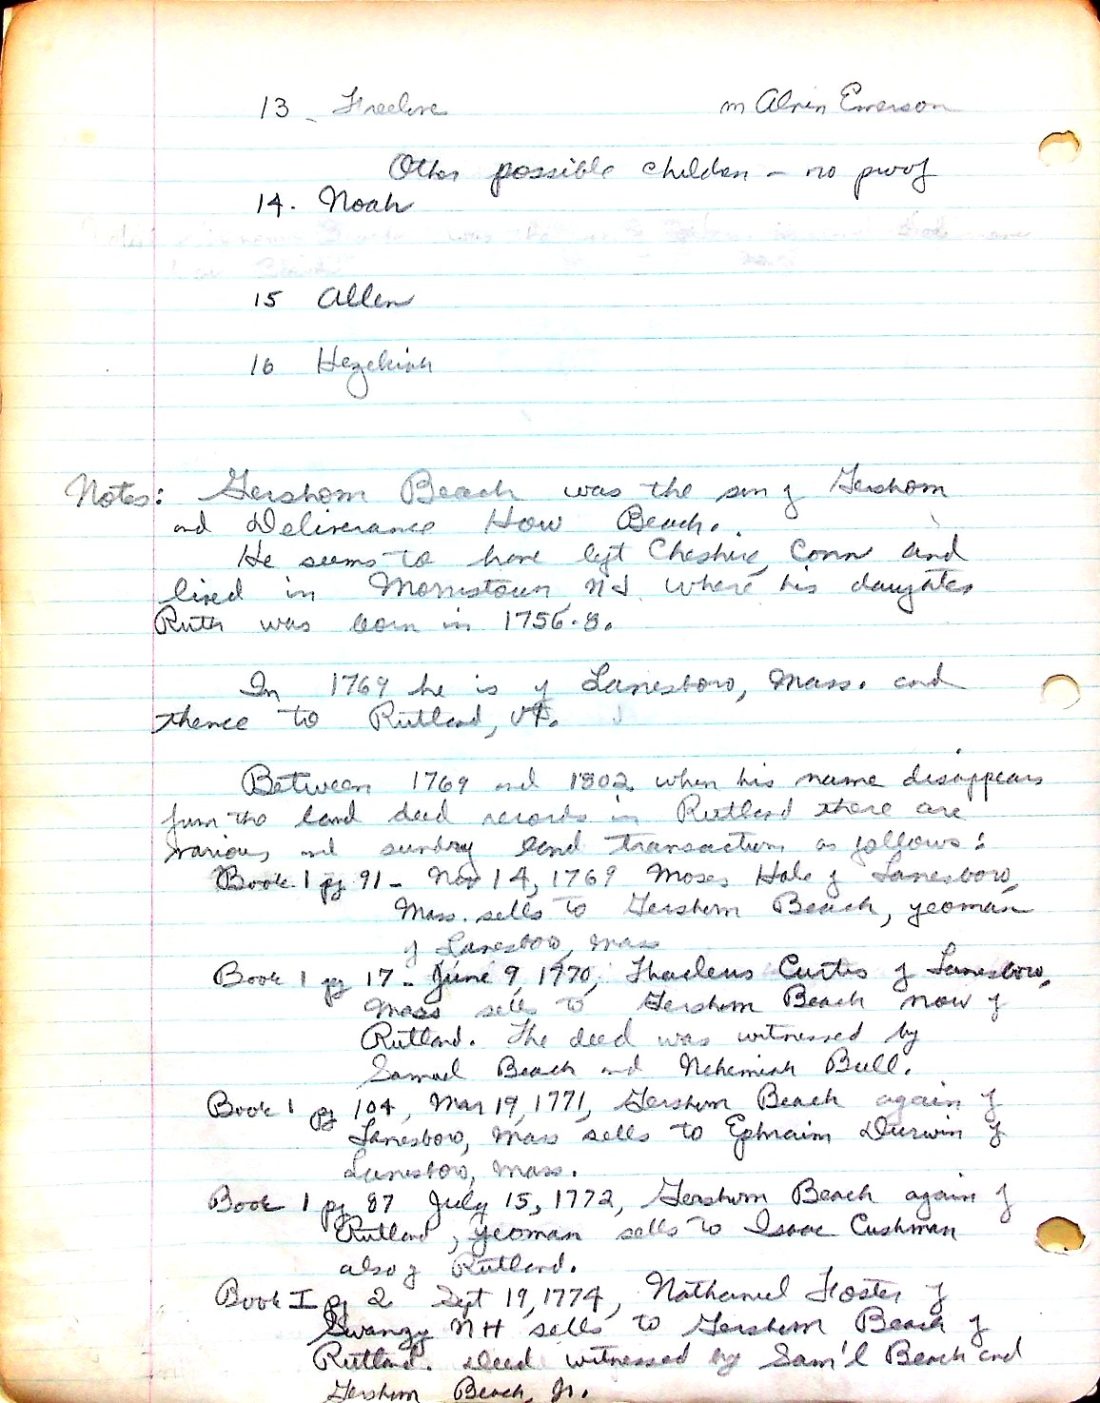 13 - Freelove m Alvin Emerson
Other possible children - no proof
14. Noah
15 Allen
16 Hezekiah
Notes: Gershom Beach was the son of Gershom
and Deliverance How Beach.
He seems to have left Cheshire, Conn and
lived in Morristown, NJ where his daughter
Ruth was born in 1756-8.
In 1769 he is of Lanesboro, Mass. and
thence to Rutland, Vt.
Between 1769 and 1802 when his name disappears
from the land deed records in Rutland there are
various and sundry land transactions as follows:
Book 1 pg 91 - Nov 14, 1769 Moses Hale of Lanesboro,
Mass. sells to Gershom Beach, yeoman
of Lanesboro, Mass
Book 1 pg 17 - June 9, 1770, Thadeus Curtis of Lanesboro,
Mass sells to Gershom Beach now of
Rutland. The deed was witnessed by
Samuel Beach and Nehemiah Bull.
Book 1 pg 104, Mar 19, 1771, Gershom Beach again of
Lanesboro, Mass sells to Ephraim Durwin of
Lanesboro, Mass.
Book 1 pg 87 July 15, 1772, Gershom Beach again of
Rutland, yeoman sells to Isaac Cushman
also of Rutland.
Book I pg 2 Sept 19, 1774, Nathaniel Foster of
Swanzy NH sells to Gershom Beach of
Rutland. Deed witnessed by Sam'l Beach and
Gershom Beach, Jr.